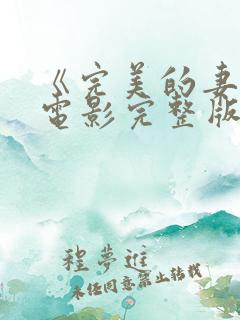 《完美的妻
电影完整版
程梦进
未经同意禁止转载